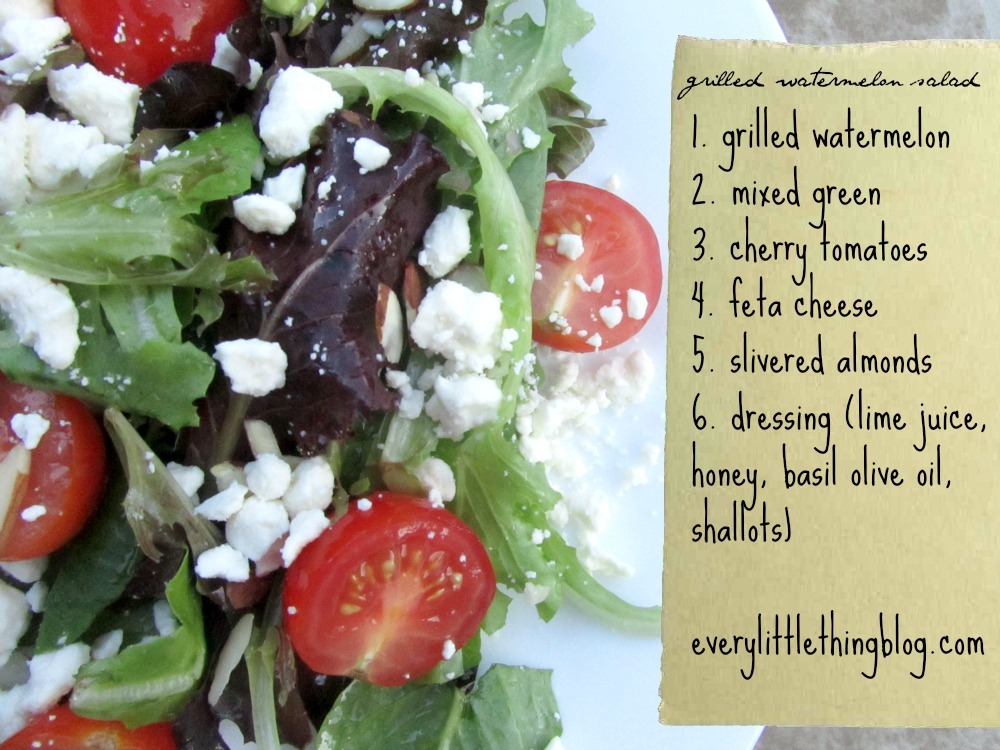 grilled watermelon salad
1. grilled watermelon
2. mixed green
3. cherry tomatoes
4. feta cheese
5. slivered almonds
6. dressing (lime juice,
honey, basil olive oil,
shallots)
everylittlethingblog.com